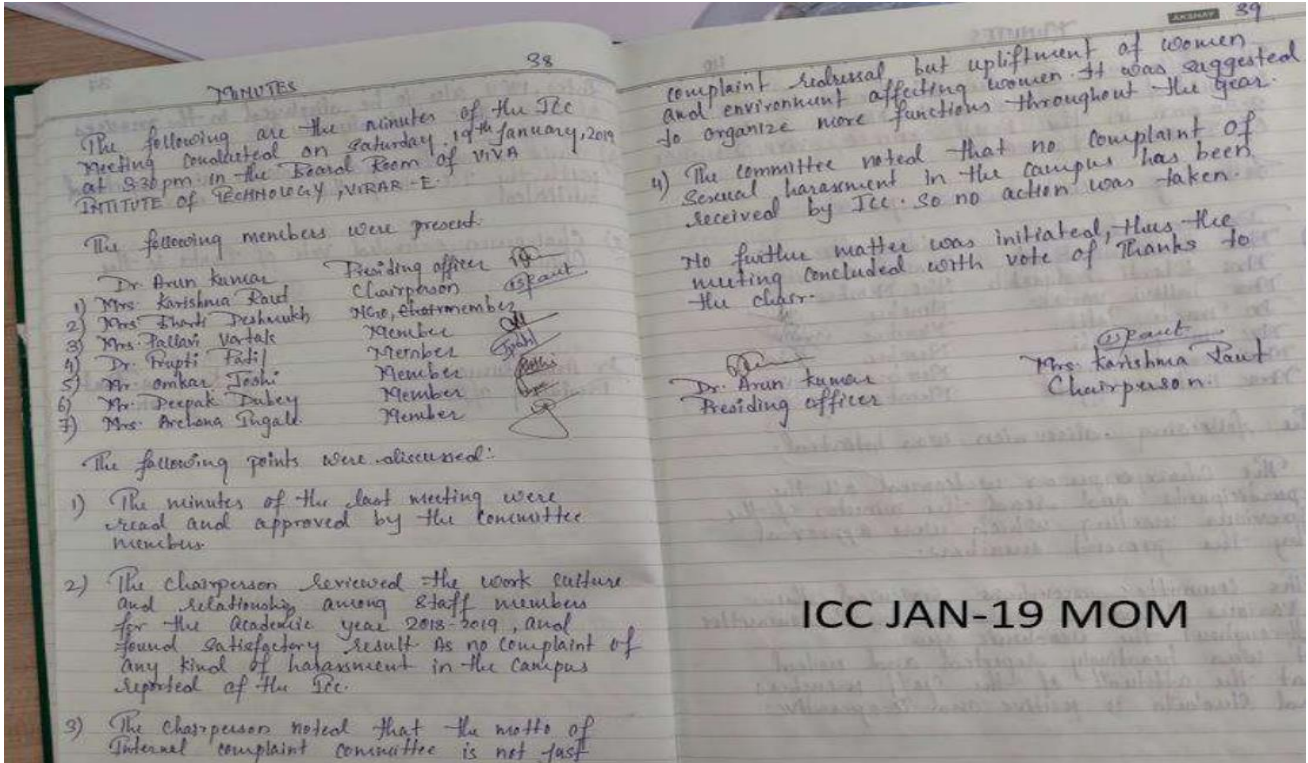 38
MINUTES
The following are the minutes of the Icc
Meeting conducted on Saturday, 19th January, 2019
at 3:30pm in the Board Room of VIVA
INTITUTE of TECHNOLOGY, VIRAR-E.
The following members were present.
Dr. Arun Kumar Presiding officer
1) Mrs. Karishma Raut Chairperson
2) Mrs. Bharti Deshmukh NGO, member
3) Mrs. Pallavi Vartak Member
4) Dr. Trupti Patil Member
5) Mr. Omkar Joshi Member
6) Mr. Deepak Dubey Member
7) Mrs. Archana Ingale Member
The following points were discussed:
1) The minutes of the last meeting were
read and approved by the committee
members.
2) The chairperson reviewed the work culture
and relationship among staff members
for the academic year 2018-2019, and
found satisfactory result. As no complaint of
any kind of harassment in the campus
reported of the Icc.
3) The chairperson noted that the motto of
Internal complaint committee is not just
AKSHAY 39
complaint redressal but upliftment of women
and environment affecting women. It was suggested
to organize more functions throughout the year.
4) The committee noted that no complaint of
Sexual harassment in the campus has been
received by Icc. So no action was taken.
No further matter was initiated, thus the
meeting concluded with vote of Thanks to
the chair.
Dr. Arun Kumar
Presiding officer
Mrs. Karishma Raut
Chairperson
ICC JAN-19 MOM